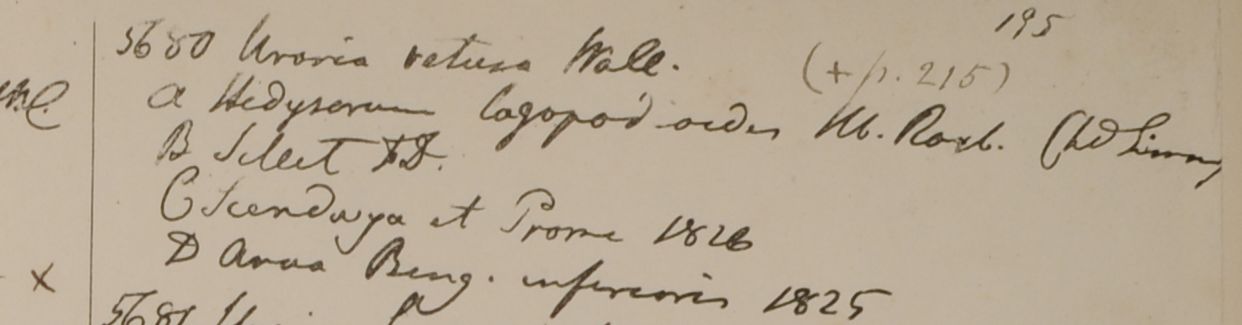 195
5680 Uraria retusa Wall.
(+ p. 215)
a Hedysarum lagopodioides Hb. Roxb. (hd Linn)
B Sillet FD.
C Scendwya et Prome 1826
D Arva Beng. inferioris 1825
x
5681